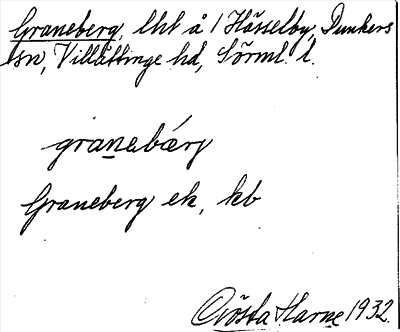 Graneberg, lht å 1 Hässelby, Dunkers
sn, Villåttinge hd, Sörml. l.
granebärj
Graneberg ek, kb
Gösta Harne 1932.